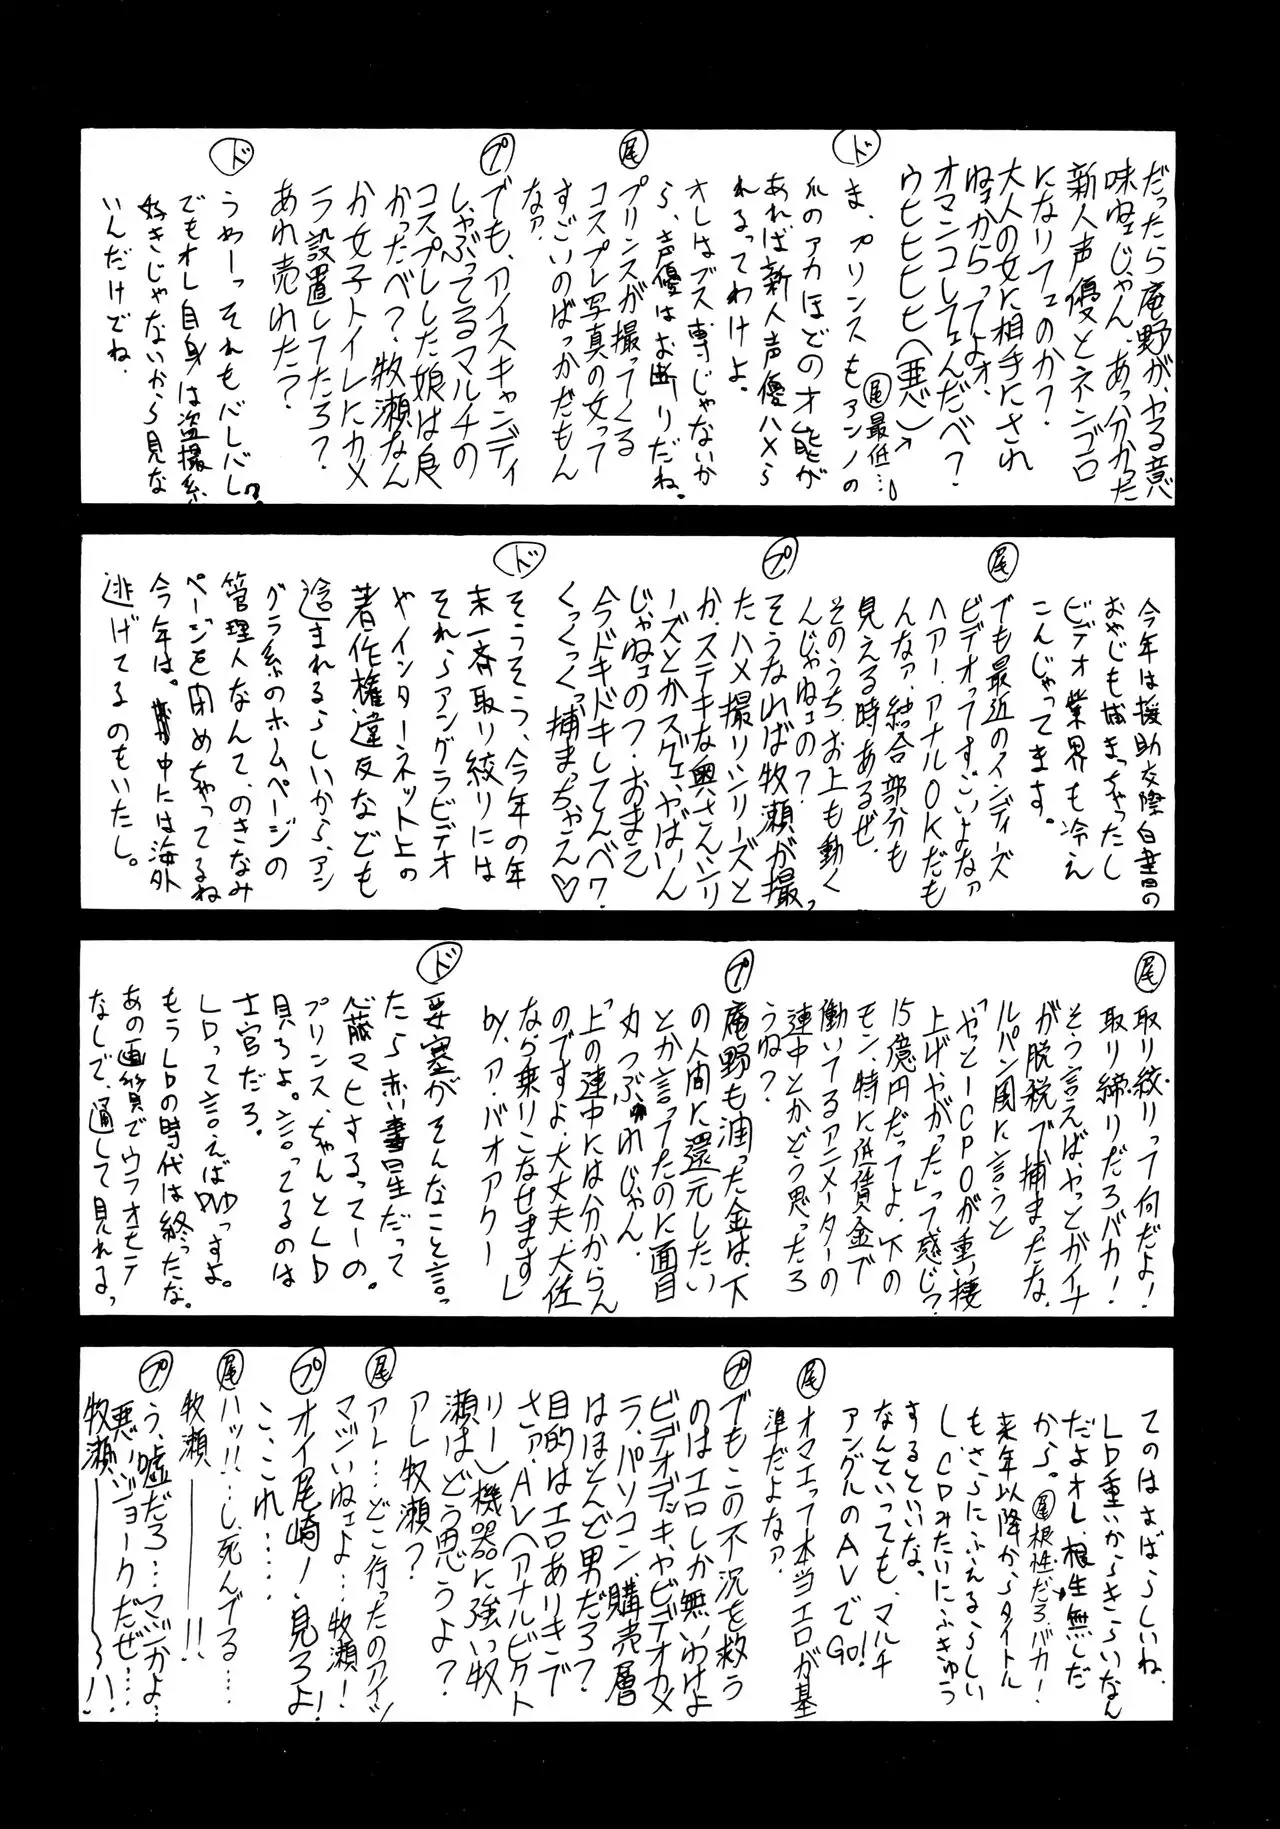 だったら庵野が、ヤる意
味ねェじゃん、あっ分かった
新人声優とネンゴロ
になりフェのか？
大人の女に相手にされ
ねェからってよォ、
オマンコしてェんだべ？
ウヒヒヒヒヒ(悪)→
尾 最低…。
ド ま、プリンスもアンノの
爪のアカほどの才能が
あれば新人声優ハメら
れるってわけよ。
オレはブス専じゃないか
ら、声優はお断りだね。
尾 プリンスが撮ってくる
コスプレ写真の女って
すごいのばっかだもん
なァ。
プ でも、アイスキャンディ
しゃぶってるマルチの
コスプレした娘は良
かったべ？牧瀬なん
か女子トイレにカメ
ラ設置してたろ？
あれ売れた？
ド うわーってそれもバレバレ？
でもオレ自身は盗撮系
好きじゃないから見な
いんだけどね。
今年は援助交際白書の
おやじも捕まっちゃったし
ビデオ業界も冷え
こんじゃってます。
尾 でも最近のインディーズ
ビデオってすごいよなァ
ヘアー、アナルOKだも
んなァ、結合部分も
見える時あるぜ、
そのうち、お上も動く
んじゃねェの？
プ そうなれば牧瀬が撮っ
たハメ撮リシリーズと
か、ステキな奥さんシリ
ーズとかスゲェ、やばいん
じゃねェの？おまえ
今ドキドキしてんべ？
くっくっくっ捕まっちゃえ♡
ド そうそう、今年の年
末一斉取り絞りには
それらアングラビデオ
やインターネット上の
著作権違反なども
含まれるらしいから、アン
グラ系のホームページの
管理人なんて、のきなみ
ページを閉めちゃってるね
今年は。中には海外
逃げてるのもいたし。
尾 取り絞りって何だよ！
取り締りだろバカ！
そう言えば、やっとガイナ
が脱税で捕まったな、
ルパン風に言うと
「やっとICPOが重い棲
上げやがった」って感じ？
15億円だってよ、下の
モン、特に低賃金で
働いてるアニメーターの
連中とかどう思ったろ
うね？
プ 庵野も浦った金は、下
の人間に還元したい
とか言ってたのに面目
丸つぶれじゃん、
「上の連中には分からん
のですよ、大丈夫、大佐
なら乗りこなせます」
by、ア・バオアクー
ド 要塞がそんなこと言っ
たら赤い彗星だって
心臓マヒするってーの。
プリンス、ちゃんとLD
見ろよ。言ってるのは
士官だろ。
LDって言えばDVDっすよ。
もうLDの時代は終ったな。
あの画質でウラオモテ
なしで、通して見れるっ
てのはすばらしいね。
LD重いからきらいなん
だよオレ、根性無しだ
から。尾 根性だろ、バカ！
来年以降から、タイトル
もさらにふえるらしい
し、CDみたいにふきゅう
するといいな。
なんといっても、マルチ
アングルのAVでGO！
尾 オマエって本当エロが基
準だよなァ。
プ でもこの不況を救う
のはエロしか無いわけよ
ビデオデッキ、やビデオカメ
ラ、パソコン、購売層
はほとんど男だろ？
目的はエロありきで
さァ、AV(アナルビクト
リー)機器に強い牧
瀬はどう思うよ？
アレ牧瀬？
尾 アレ…どこ行ったのアイツ
マズいねェよ…牧瀬！
プ オイ尾崎！見ろよ！
こ、これ……
尾 ハッ!!…し、死んでる…
牧瀬――!!
プ う、嘘だろ…マジかよ…
悪いジョークだぜ……
牧瀬―――〜!!